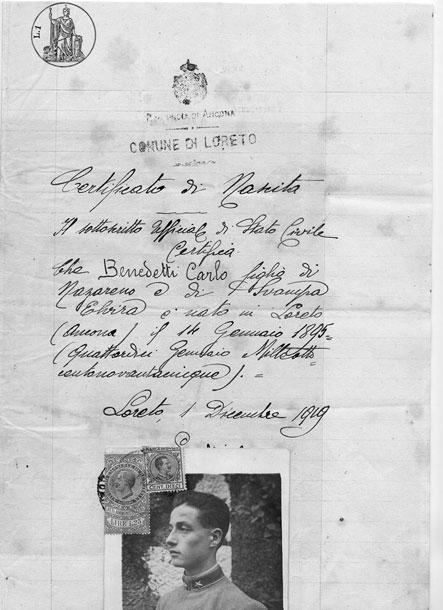 L.1
PROVINCIA DI ANCONA
COMUNE DI LORETO
Certificato di Nascita
Il sottoscritto Ufficiale di Stato Civile
Certifica
Che Benedetti Carlo figlio di
Nazareno e di Svampa
Elvira è nato in Loreto
(Ancona) il 14 Gennaio 1895=
(Quattordici Gennaio Milleotto=
centonovantacinque).=
Loreto, 1 Dicembre 1919
CENT. DIECI